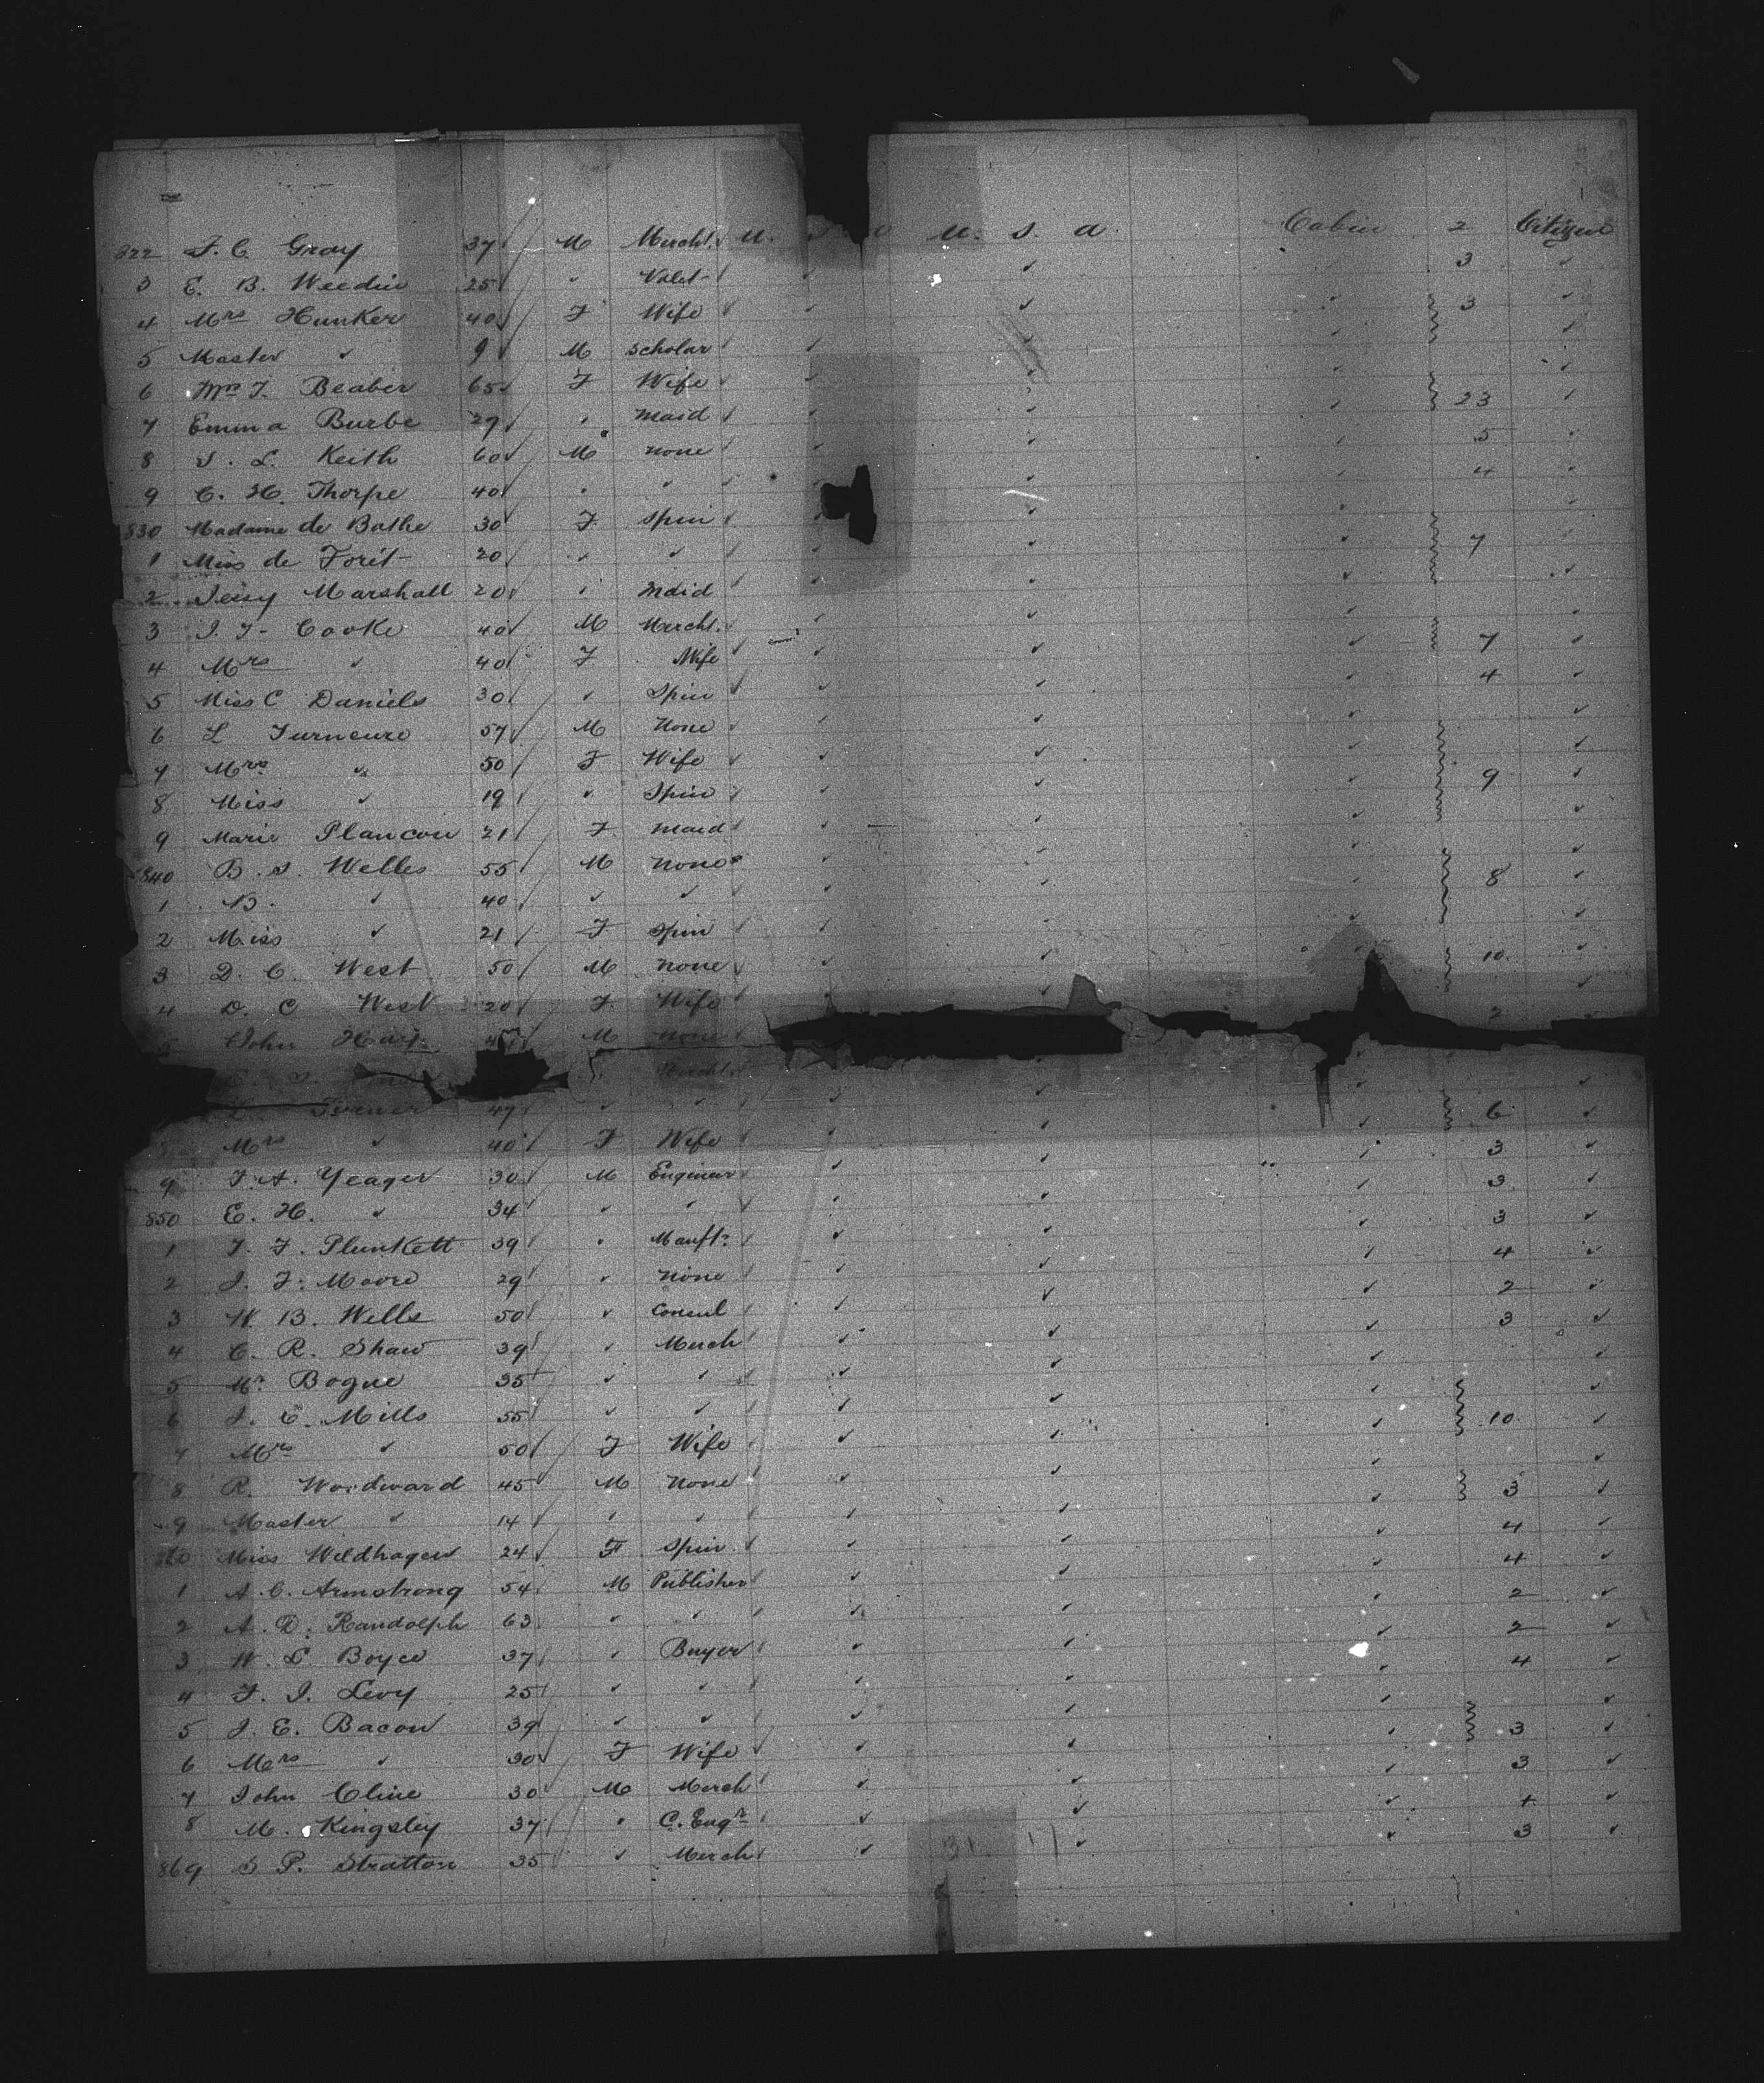 822 F. C. Gray 37 M Mercht. U. S. a U. S. a Cabin 2 Citizen
3 E. B. Weedin 25 " Valet 3
4 Mrs Hunker 40 F Wife 3
5 Master " 9 M Scholar
6 Mrs J. Beaber 65 F Wife
7 Emma Burbe 27 " Maid 23
8 S. L. Keith 60 M None 5
9 C. H. Thorpe 40 " " 4
830 Madame de Bathe 30 F Spin
1 Miss de Forét 20 " " 7
2 Jessy Marshall 20 " Maid
3 J. F. Cooke 40 M Mercht.
4 Mrs " 40 F Wife 7
5 Miss C Daniels 30 " Spin 4
6 L Turneure 57 M None
7 Mrs " 50 F Wife
8 Miss " 19 " Spin 9
9 Marie Plancon 21 F Maid
840 B. S. Welles 55 M None
1 B. " 40 " " 8
2 Miss " 21 F Spin
3 D. C. West 50 M None 10
4 D. C West 20 F Wife
5 John Hay M None 2
Mercht.
Turner 47 " "
8 Mrs " 40 F Wife 6
9 F. A. Yeager 30 M Engineer 3
850 E. H. " 34 " " 3
1 T. F. Plunkett 39 " Manftr 3
2 J. F. Moore 29 " None 4
3 W. B. Wells 50 " Consul 2
4 C. R. Shaw 39 " Merch 3
5 Mr Bogue 35 " "
6 J. C. Mills 55 " "
7 Mrs " 50 F Wife 10
8 R. Woodward 45 M None
9 Master " 14 " " 3
860 Miss Wildhagen 24 F Spin 4
1 A. C. Armstrong 54 M Publisher 4
2 A. D. Randolph 63 " " 2
3 W. L Boyce 37 " Buyer 2
4 F. J. Levy 25 " " 4
5 J. E. Bacon 39 " "
6 Mrs " 30 F Wife 3
7 John Cline 30 M Merch 3
8 M. Kingsley 37 " C. Engr
869 S P. Stratton 35 " Merch 3